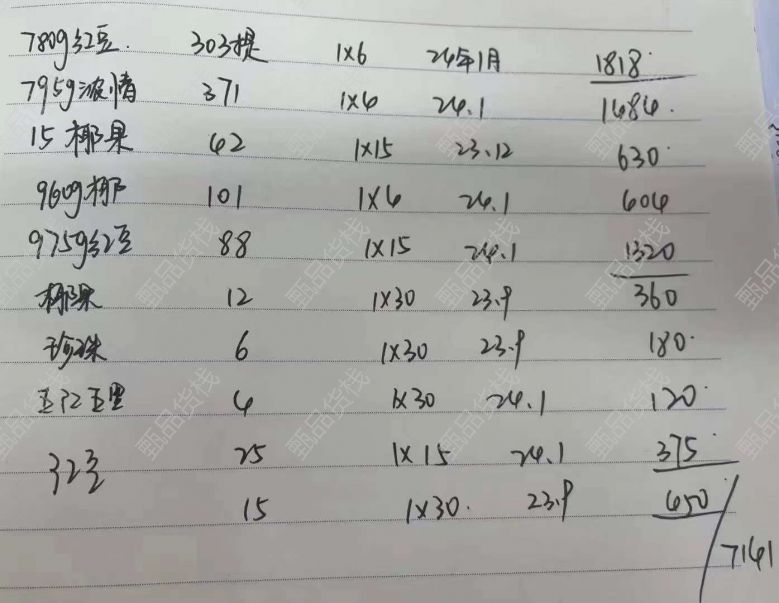 780g红豆. 303提 1x6 24年1月 1818.
795g浓情 371 1x4 24.1 1484.
15椰果 42 1x15 23.12 630.
960g椰 101 1x4 24.1 404
975g红豆 88 1x15 24.1 1320
椰果 12 1x30 23.9 360
珍珠 6 1x30 23.9 180.
五红五黑 4 1x30 24.1 120.
红豆 25 1x15 24.1 375.
15 1x30. 23.9 450
7141
甄品货栈